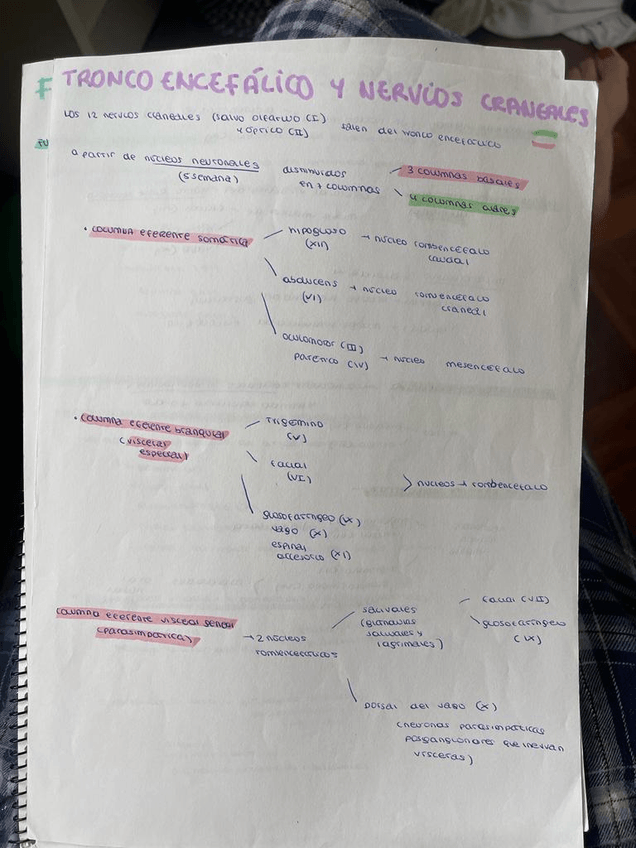 TRONCO ENCEFÁLICO Y NERVIOS CRANEALES
Los 12 nervios craneales (salvo olfativo (I)
y óptico (II)
salen del tronco encefálico
a partir de núcleos neuronales
(5 semana)
distribuidos
en 7 columnas
3 columnas basales
4 columnas alares
• columna eferente somática
hipogloso
(XII)
→ núcleo rombencéfalo
caudal
abducens
(VI)
→ núcleo rombencéfalo
craneal
oculomotor (III)
patético (IV)
→ núcleo mesencéfalo
• columna eferente branquial
(visceral
especial)
Trigémino
(V)
facial
(VII)
glosofaríngeo (IX)
vago (X)
espinal
accesorio (XI)
> núcleos → rombencéfalo
columna eferente visceral general
(parasimpática)
→ 2 núcleos
salivales
(glándulas
salivales y
lagrimales)
facial (VII)
glosofaríngeo
(IX)
dorsal del vago (X)
(neuronas parasimpáticas
posganglionares que inervan
vísceras)